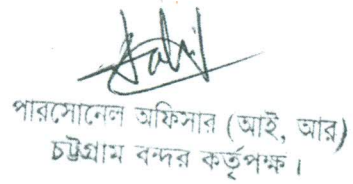 পারসোনেল অফিসার (আই, আর)
চট্টগ্রাম বন্দর কর্তৃপক্ষ।